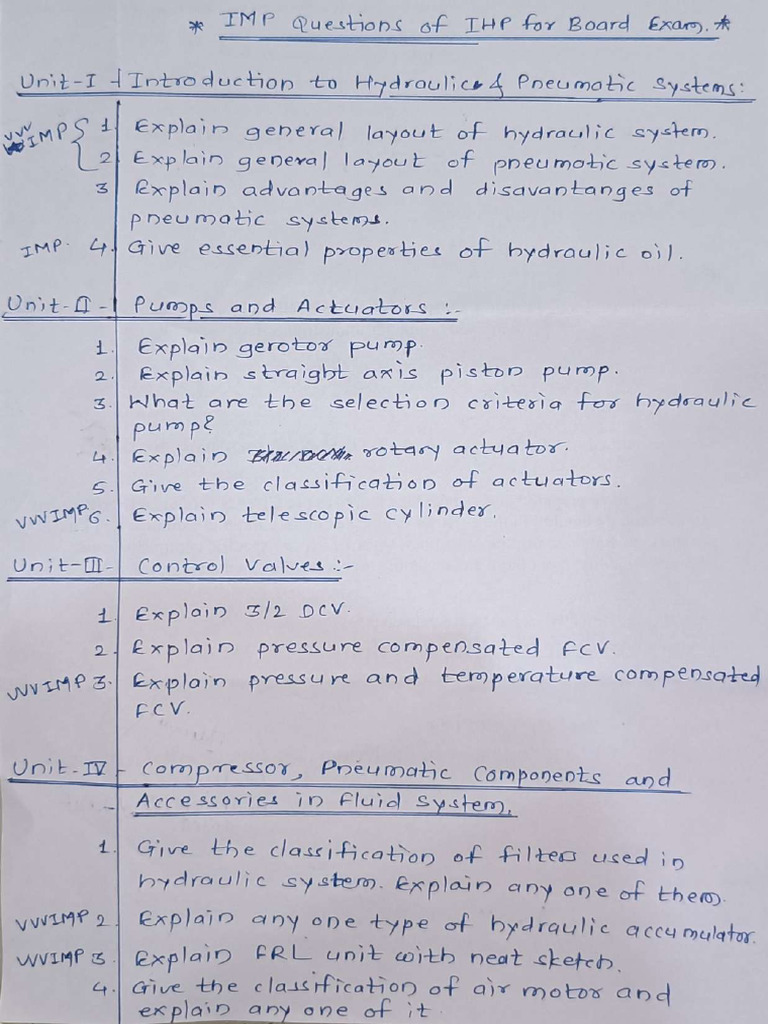 * IMP Questions of IHP for Board Exam. *
Unit-I - Introduction to Hydraulic & Pneumatic Systems:
VVV IMP { 1 Explain general layout of hydraulic system.
2 Explain general layout of pneumatic system.
3 Explain advantages and disavantanges of
pneumatic systems.
IMP. 4. Give essential properties of hydraulic oil.
Unit-II - Pumps and Actuators :-
1. Explain gerotor pump.
2. Explain straight axis piston pump.
3. What are the selection criteria for hydraulic
pump?
4. Explain rotary actuator.
5. Give the classification of actuators.
VVVIMP 6. Explain telescopic cylinder.
Unit-III- Control Valves :-
1. Explain 3/2 DCV.
2. Explain pressure compensated FCV.
VVVIMP 3. Explain pressure and temperature compensated
FCV.
Unit-IV - Compressor, Pneumatic Components and
Accessories in Fluid System.
1. Give the classification of filters used in
hydraulic system. Explain any one of them.
VVVIMP 2. Explain any one type of hydraulic accumulator.
VVVIMP 3. Explain FRL unit with neat sketch.
4. Give the classification of air motor and
explain any one of it.